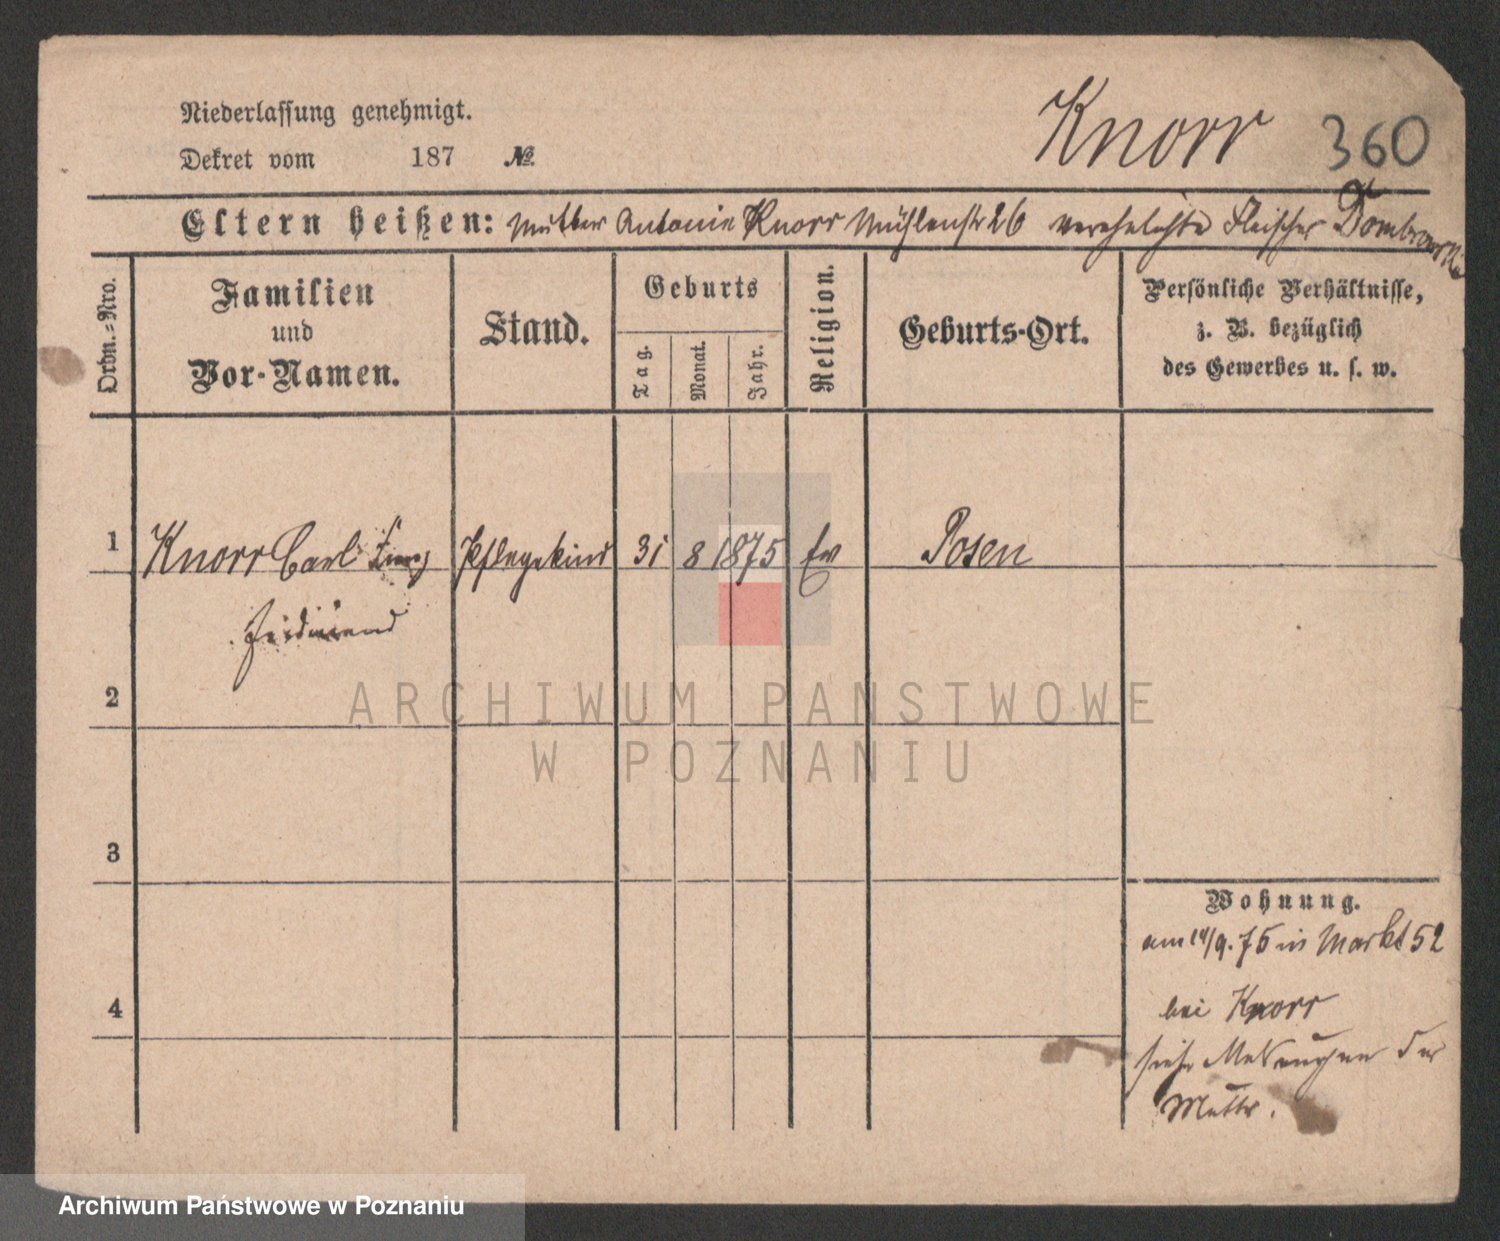 Niederlassung genehmigt.
Knorr 360
Dekret vom 187 №
Eltern heißen: Mutter Antonie Knorr Mühlenstr 26 verehelichte Fleischer Dombrowski
Ordn.-Nro.
Familien
und
Vor-Namen.
Stand.
Geburts
Tag.
Monat.
Jahr.
Religion.
Geburts-Ort.
Persönliche Verhältnisse,
z. B. bezüglich
des Gewerbes u. s. w.
1 Knorr Carl Pflegekind 31 8 1875 Ev Posen
Ferdinand
2
3
4
Wohnung.
am 14/9. 75 in Markt 52
bei Knorr
siehe Meldungen der
Mutter.
ARCHIWUM PAŃSTWOWE
W POZNANIU
Archiwum Państwowe w Poznaniu